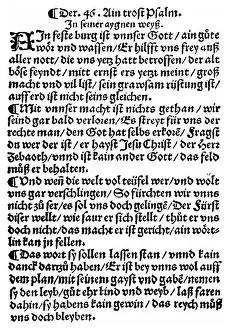 ¶ Der. 46. Ain trost Psalm.
In seiner aygnen weyß.
AIn feste burg ist vnnser Gott / ain gůte
wör vnd waffen / Er hilfft vns frey auß
aller nott / die vns yetz hatt betroffen / der alt
böse feyndt / mit ernst ers yetz meint / groß
macht vnd vil list / sein grawsam rüstung ist /
auff erd ist nicht seins gleichen.
¶ Mit vnnser macht ist nichts gethan / wir
seind gar bald verloren / Es streyt für vns der
rechte man / den Got hat selbs erkorē / Fragst
du wer der ist / er hayst Jesu Christ / der Herr
Zebaoth / vnnd ist kain ander Gott / das feld
můß er behalten.
¶ Vnd weñ die welt vol teüfel wer / vnd wolt
vns gar verschlingen / So fürchten wir vnns
nicht zů ser / es sol vns doch gelingē / Der Fürst
diser wellt / wie saur er sich stellt / thůt er vns
doch nicht / das macht er ist gericht / ain wört-
lin kan jn fellen.
¶ Das wort sy sollen lassen stan / vnnd kain
danck darzů haben / Er ist bey vnns wol auff
dem plan / mit seinem gayst vnd gabē / nemen
sy den leyb / gůt eer kind vnd weyb / laß faren
dahin / sy habens kain gewin / das reych můß
vns doch bleyben.